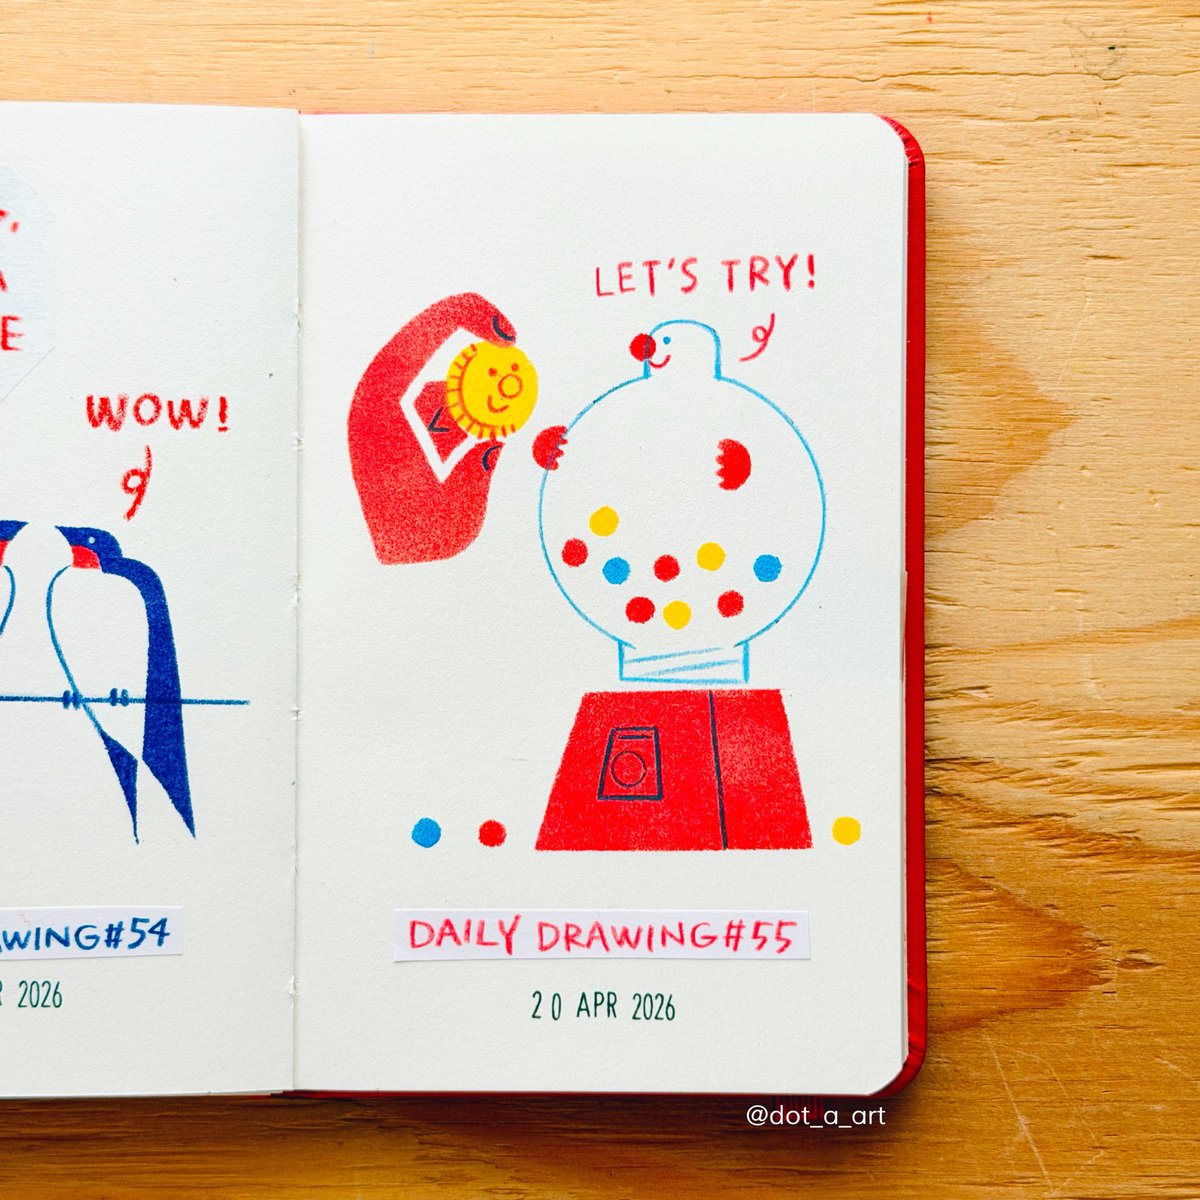 WOW!
#54
2026
LET'S TRY!
DAILY DRAWING#55
20 APR 2026
@dot_a_art